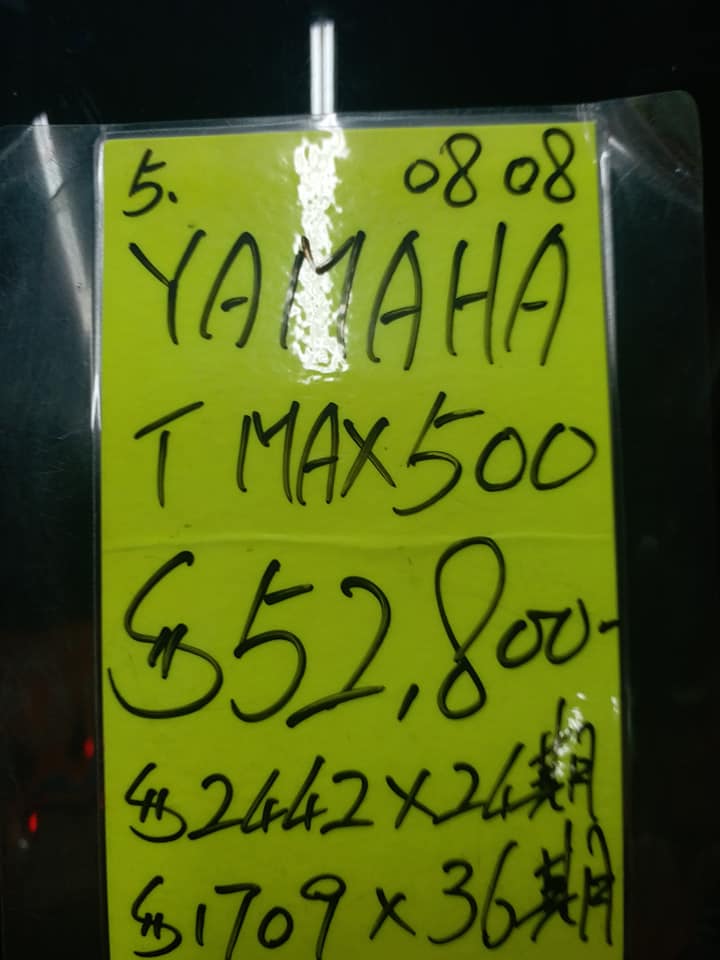 5. 0808
YAMAHA
T MAX500
$52,800-
$2442×24期
$1709×36期